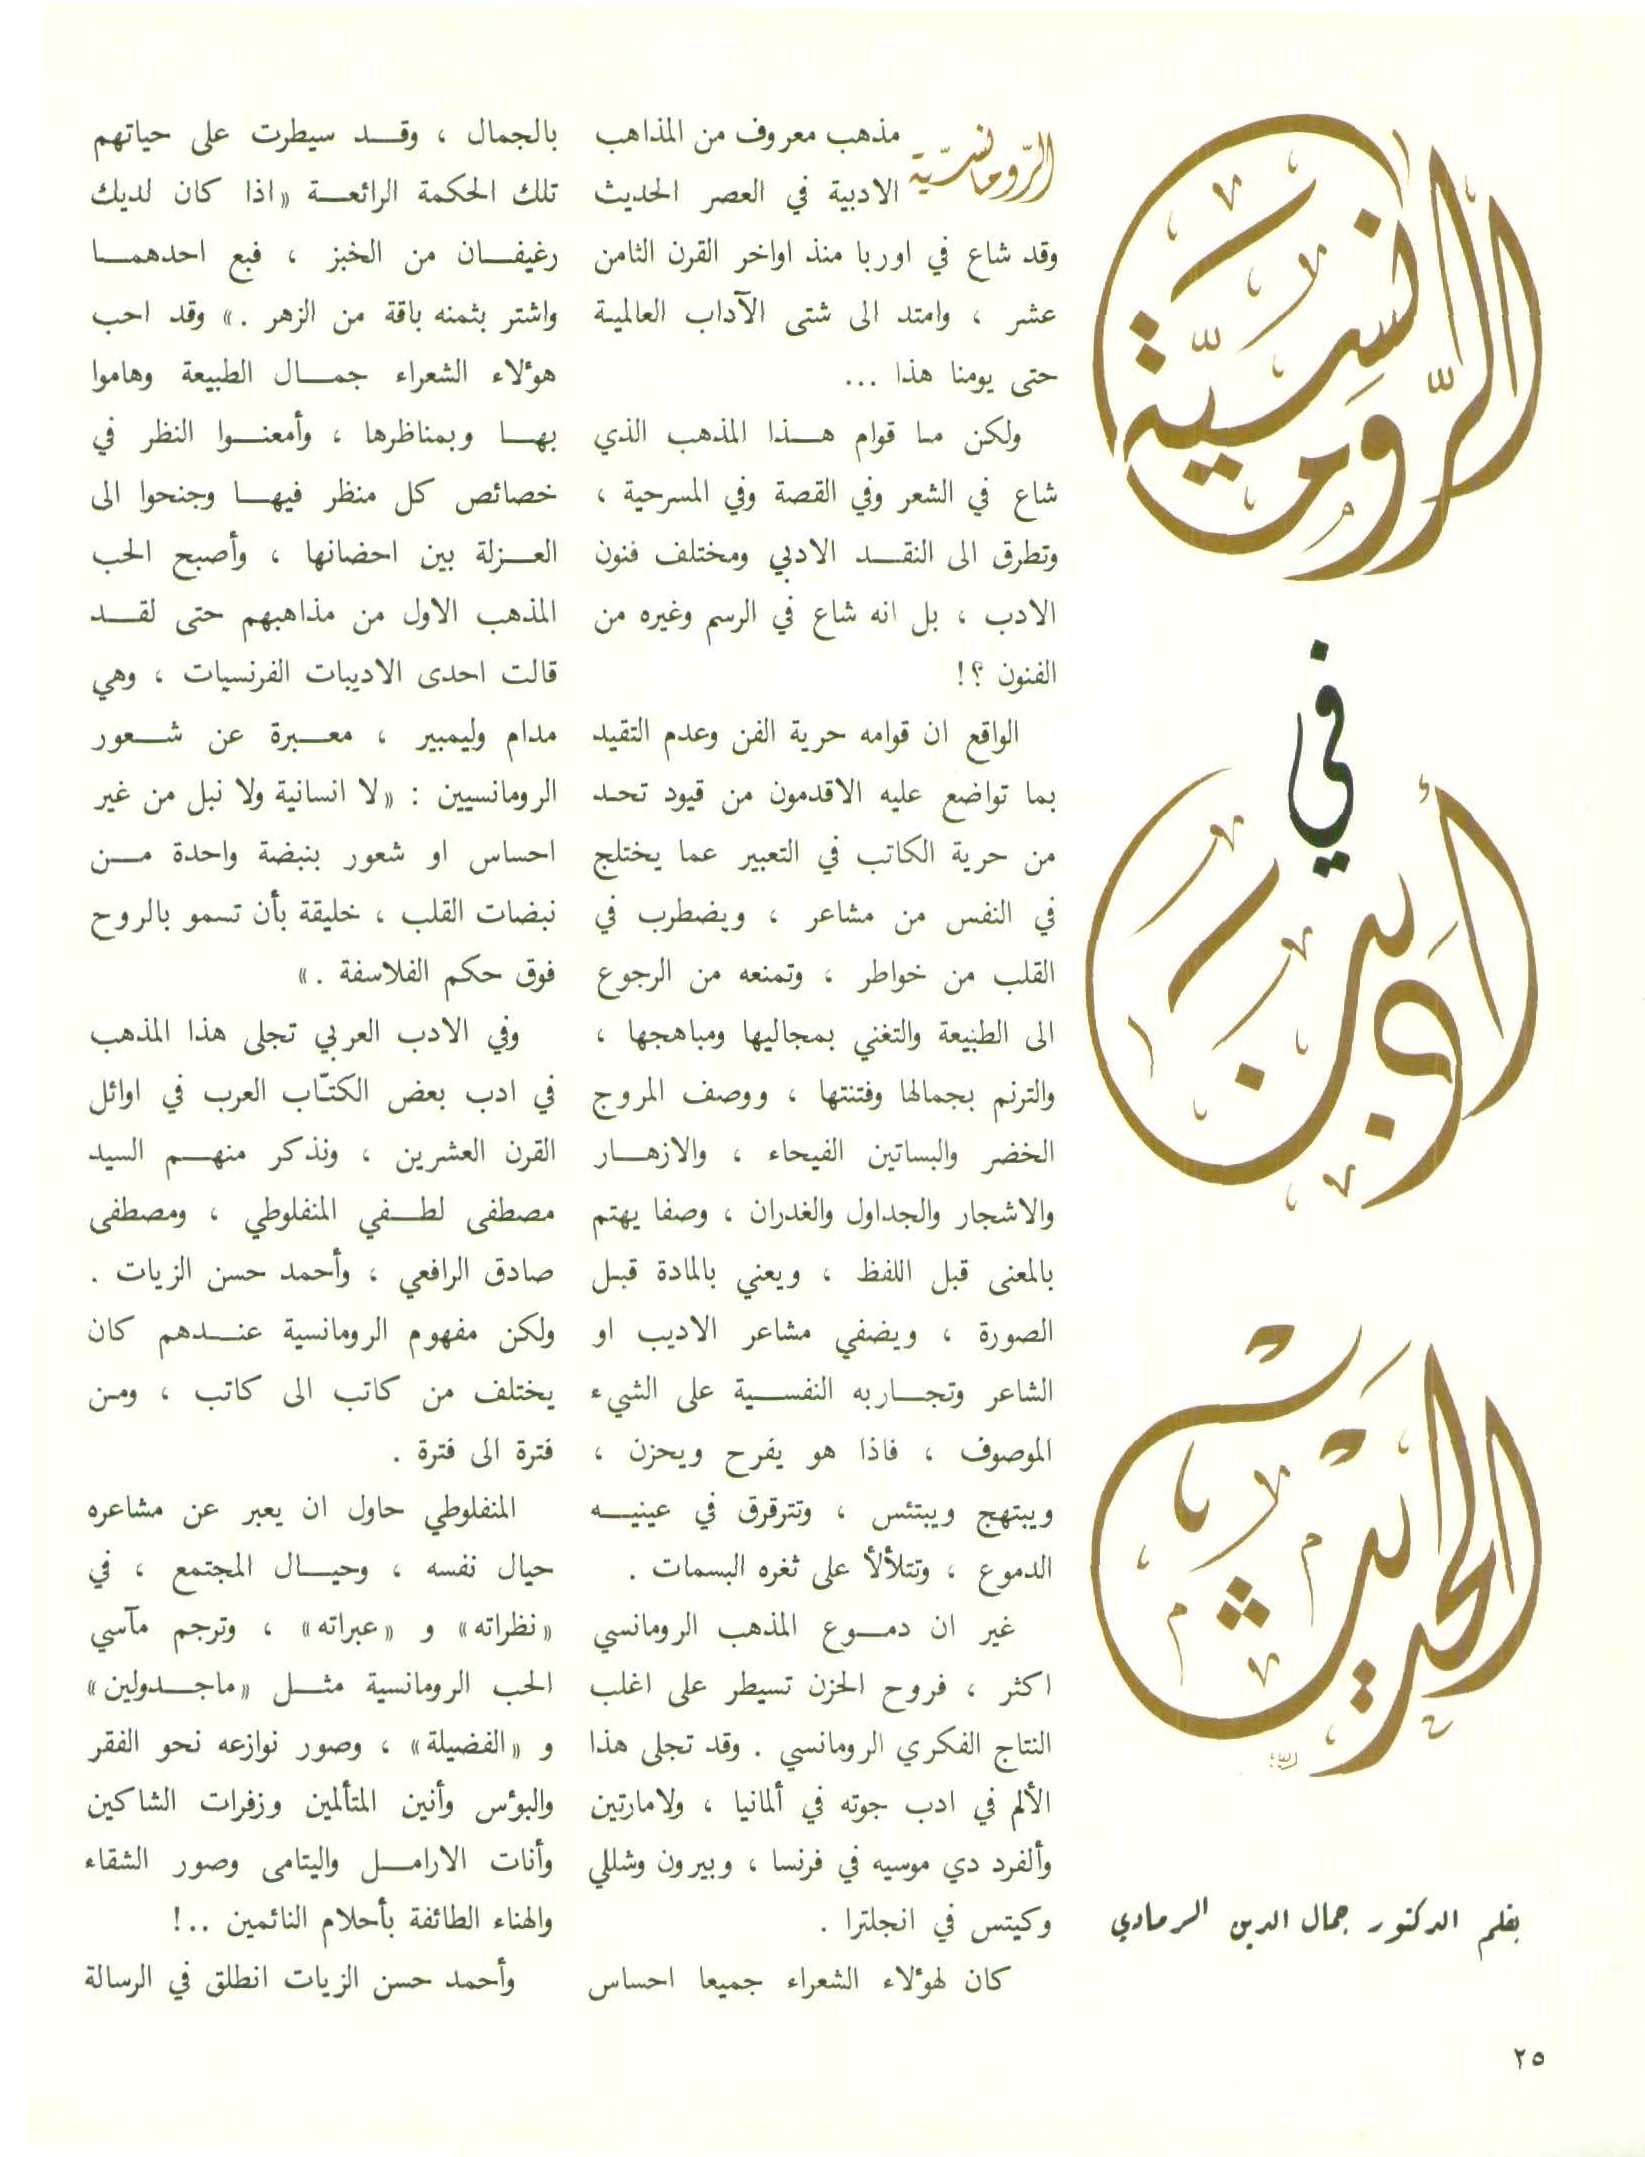 الرّومانسيّة
في
أدبنا
الحديث
بقلم الدكتور جمال الدين الرمادي
الرّومانسيّة مذهب معروف من المذاهب
الادبية في العصر الحديث
وقد شاع في اوربا منذ اواخر القرن الثامن
عشر ، وامتد الى شتى الآداب العالمية
حتى يومنا هذا ...
ولكن ما قوام هذا المذهب الذي
شاع في الشعر وفي القصة وفي المسرحية ،
وتطرق الى النقد الادبي ومختلف فنون
الادب ، بل انه شاع في الرسم وغيره من
الفنون ؟!
الواقع ان قوامه حرية الفن وعدم التقيد
بما تواضع عليه الاقدمون من قيود تحد
من حرية الكاتب في التعبير عما يختلج
في النفس من مشاعر ، ويضطرب في
القلب من خواطر ، وتمنعه من الرجوع
الى الطبيعة والتغني بمجاليها ومباهجها ،
والترنم بجمالها وفتنتها ، ووصف المروج
الخضر والبساتين الفيحاء ، والازهار
والاشجار والجداول والغدران ، وصفا يهتم
بالمعنى قبل اللفظ ، ويعني بالمادة قبل
الصورة ، ويضفي مشاعر الاديب او
الشاعر وتجاربه النفسية على الشيء
الموصوف ، فاذا هو يفرح ويحزن ،
ويبتهج ويبتئس ، وتترقرق في عينيه
الدموع ، وتتلألأ على ثغره البسمات .
غير ان دموع المذهب الرومانسي
اكثر ، فروح الحزن تسيطر على اغلب
النتاج الفكري الرومانسي . وقد تجلى هذا
الألم في ادب جوته في ألمانيا ، ولامارتين
وألفرد دي موسيه في فرنسا ، وبيرون وشللي
وكيتس في انجلترا .
كان لهؤلاء الشعراء جميعا احساس
بالجمال ، وقد سيطرت على حياتهم
تلك الحكمة الرائعة «اذا كان لديك
رغيفان من الخبز ، فبع احدهما
واشتر بثمنه باقة من الزهر .» وقد احب
هؤلاء الشعراء جمال الطبيعة وهاموا
بها وبمناظرها ، وأمعنوا النظر في
خصائص كل منظر فيها وجنحوا الى
العزلة بين احضانها ، وأصبح الحب
المذهب الاول من مذاهبهم حتى لقد
قالت احدى الاديبات الفرنسيات ، وهي
مدام وليمبير ، معبرة عن شعور
الرومانسيين : «لا انسانية ولا نبل من غير
احساس او شعور بنبضة واحدة من
نبضات القلب ، خليقة بأن تسمو بالروح
فوق حكم الفلاسفة .»
وفي الادب العربي تجلى هذا المذهب
في ادب بعض الكتّاب العرب في اوائل
القرن العشرين ، ونذكر منهم السيد
مصطفى لطفي المنفلوطي ، ومصطفى
صادق الرافعي ، وأحمد حسن الزيات .
ولكن مفهوم الرومانسية عندهم كان
يختلف من كاتب الى كاتب ، ومن
فترة الى فترة .
المنفلوطي حاول ان يعبر عن مشاعره
حيال نفسه ، وحيال المجتمع ، في
«نظراته» و «عبراته» ، وترجم مآسي
الحب الرومانسية مثل «ماجدولين»
و «الفضيلة» ، وصور نوازعه نحو الفقر
والبؤس وأنين المتألمين وزفرات الشاكين
وأنات الارامل واليتامى وصور الشقاء
والهناء الطائفة بأحلام النائمين ..!
وأحمد حسن الزيات انطلق في الرسالة
٢٥